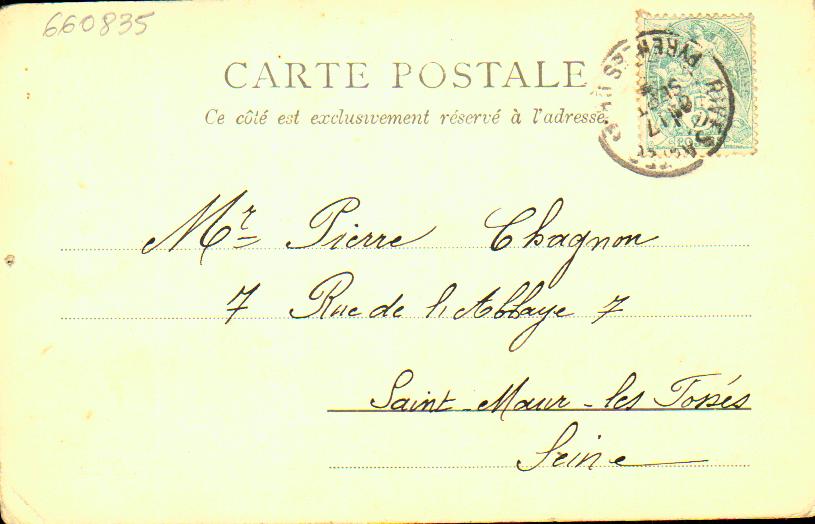 660835
CARTE POSTALE
Ce côté est exclusivement réservé à l'adresse
Mr Pierre Chagnon
7 Rue de l'Abbaye 7
Saint-Maur-les Fossés
Seine